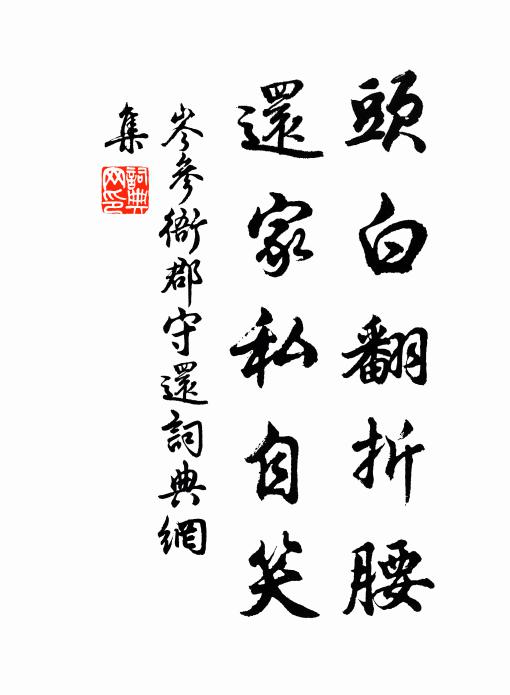 頭白翻折腰
還家私自笑
岑參衙郡守還詞典網
集
詞典網印